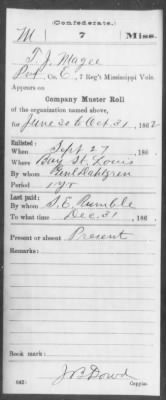 (Confederate.)
M 7 Miss.
T. J. Magee
Pvt, Co. E, 7 Reg't Mississippi Vols.
Appears on
Company Muster Roll
of the organization named above,
for June 30 to Oct. 31, 1862
Enlisted:
When Sept 27, 186
Where Bay St. Louis
By whom Genl Dahlgren
Period 1 yr
Last paid:
By whom S. E. Rumble
To what time Dec. 31, 186
Present or absent Present
Remarks:
Book mark:
J B Dowd
(642) Copyist.